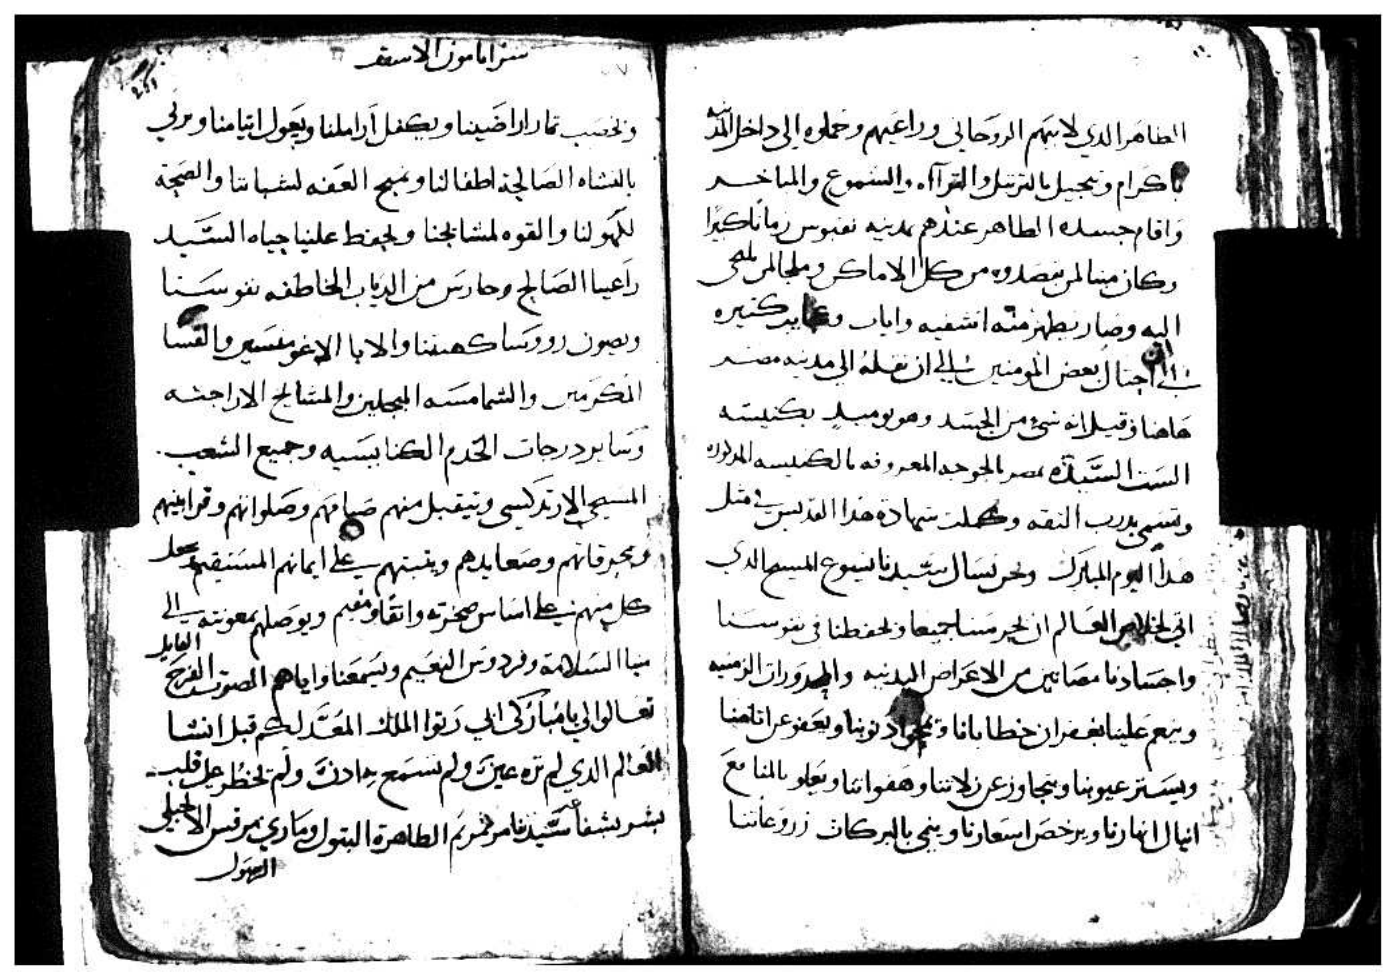 الطاهر الذي لابيهم الروحاني وراعيهم وحملوه الى داخل المدينه
باكرام وتبجيل بالترتيل والقرآاه والشموع والمباخر
واقام جسده الطاهر عندهم بمدينه نقيوس زمانًا كبيرًا
وكان مينا لمن يقصدوه من كل الاماكن وملجا لمن يلتجى
اليه وصار يظهر منه اشفيه وايات وعجايب كتيره
الى ان احتال بعض المومنين في ان نقله الى مدينه مصر
هاهنا وقيل انه شيء من الجسد وهو يوميدٍ بكنيسه
الست السيّده بمصر بالجوجه المعروفه بالكنيسه المذكوره
وتسمى بدرب التقه وكملت شهادة هذا القديس في مثل
هذا اليوم المبارك ونحن نسال سيدنا يسوع المسيح الذي
اتى لخلاص العالم ان يجيرمنا جميعا ويحفظنا في نفوسنا
واجسادنا مصانين من الاعراض البدنيه والمحدورات الزمنيه
وينعم علينا بغفران خطايانا ويمحوا ذنوبنا ويعفو عن اتامنا
ويستر عيوبنا ويتجاوز عن زلاتنا وهفواتنا ويعلو بالمنافع
انيال انهارنا ويرخص اسعارنا وينمي بالبركات زروعاتنا
سرابامون الاسقف
251
ويخصب تمار اراضينا ويكفل اراملنا ويعول ايتامنا ويربي
بالنشاه الصالحة اطفالنا ويمنح العفه لشبابنا والصحة
لكهولنا والقوه لمشايخنا ويحفظ علينا حياه السيّد
راعينا الصالح وحارس من الدياب الخاطفه نفوسنا
ويصون رووسا كهنتنا والابا الاغومنسيين والقسا
المكرمين والشمامسه المبجلين والمشايخ الاراخنه
وساير درجات الخدم الكنايسيه وجميع الشعب
المسيحي الارتدكسي ويتقبل منهم صيامهم وصلواتهم وقرابينهم
ومحرقاتهم وصعايدهم ويتبتهم على ايمانهم المستقيم ويجعل
كل منهم على اساس صخرته واتقا ومقيم ويوصلهم بمعونته الى
مينا السلامة وفردوس النعيم ويسمعنا واياهم الصوت الفرح القايل
تعالوا الي يا مباركى ابي رتوا الملك المعد لكم قبل انشا
العالم الذي لم تره عين ولم تسمع به ادن ولم يخطر على قلب
بشر بشفاعة سيدتنا مرتمريم الطاهرة البتول وماري مرقس الانجيلي
الرسول